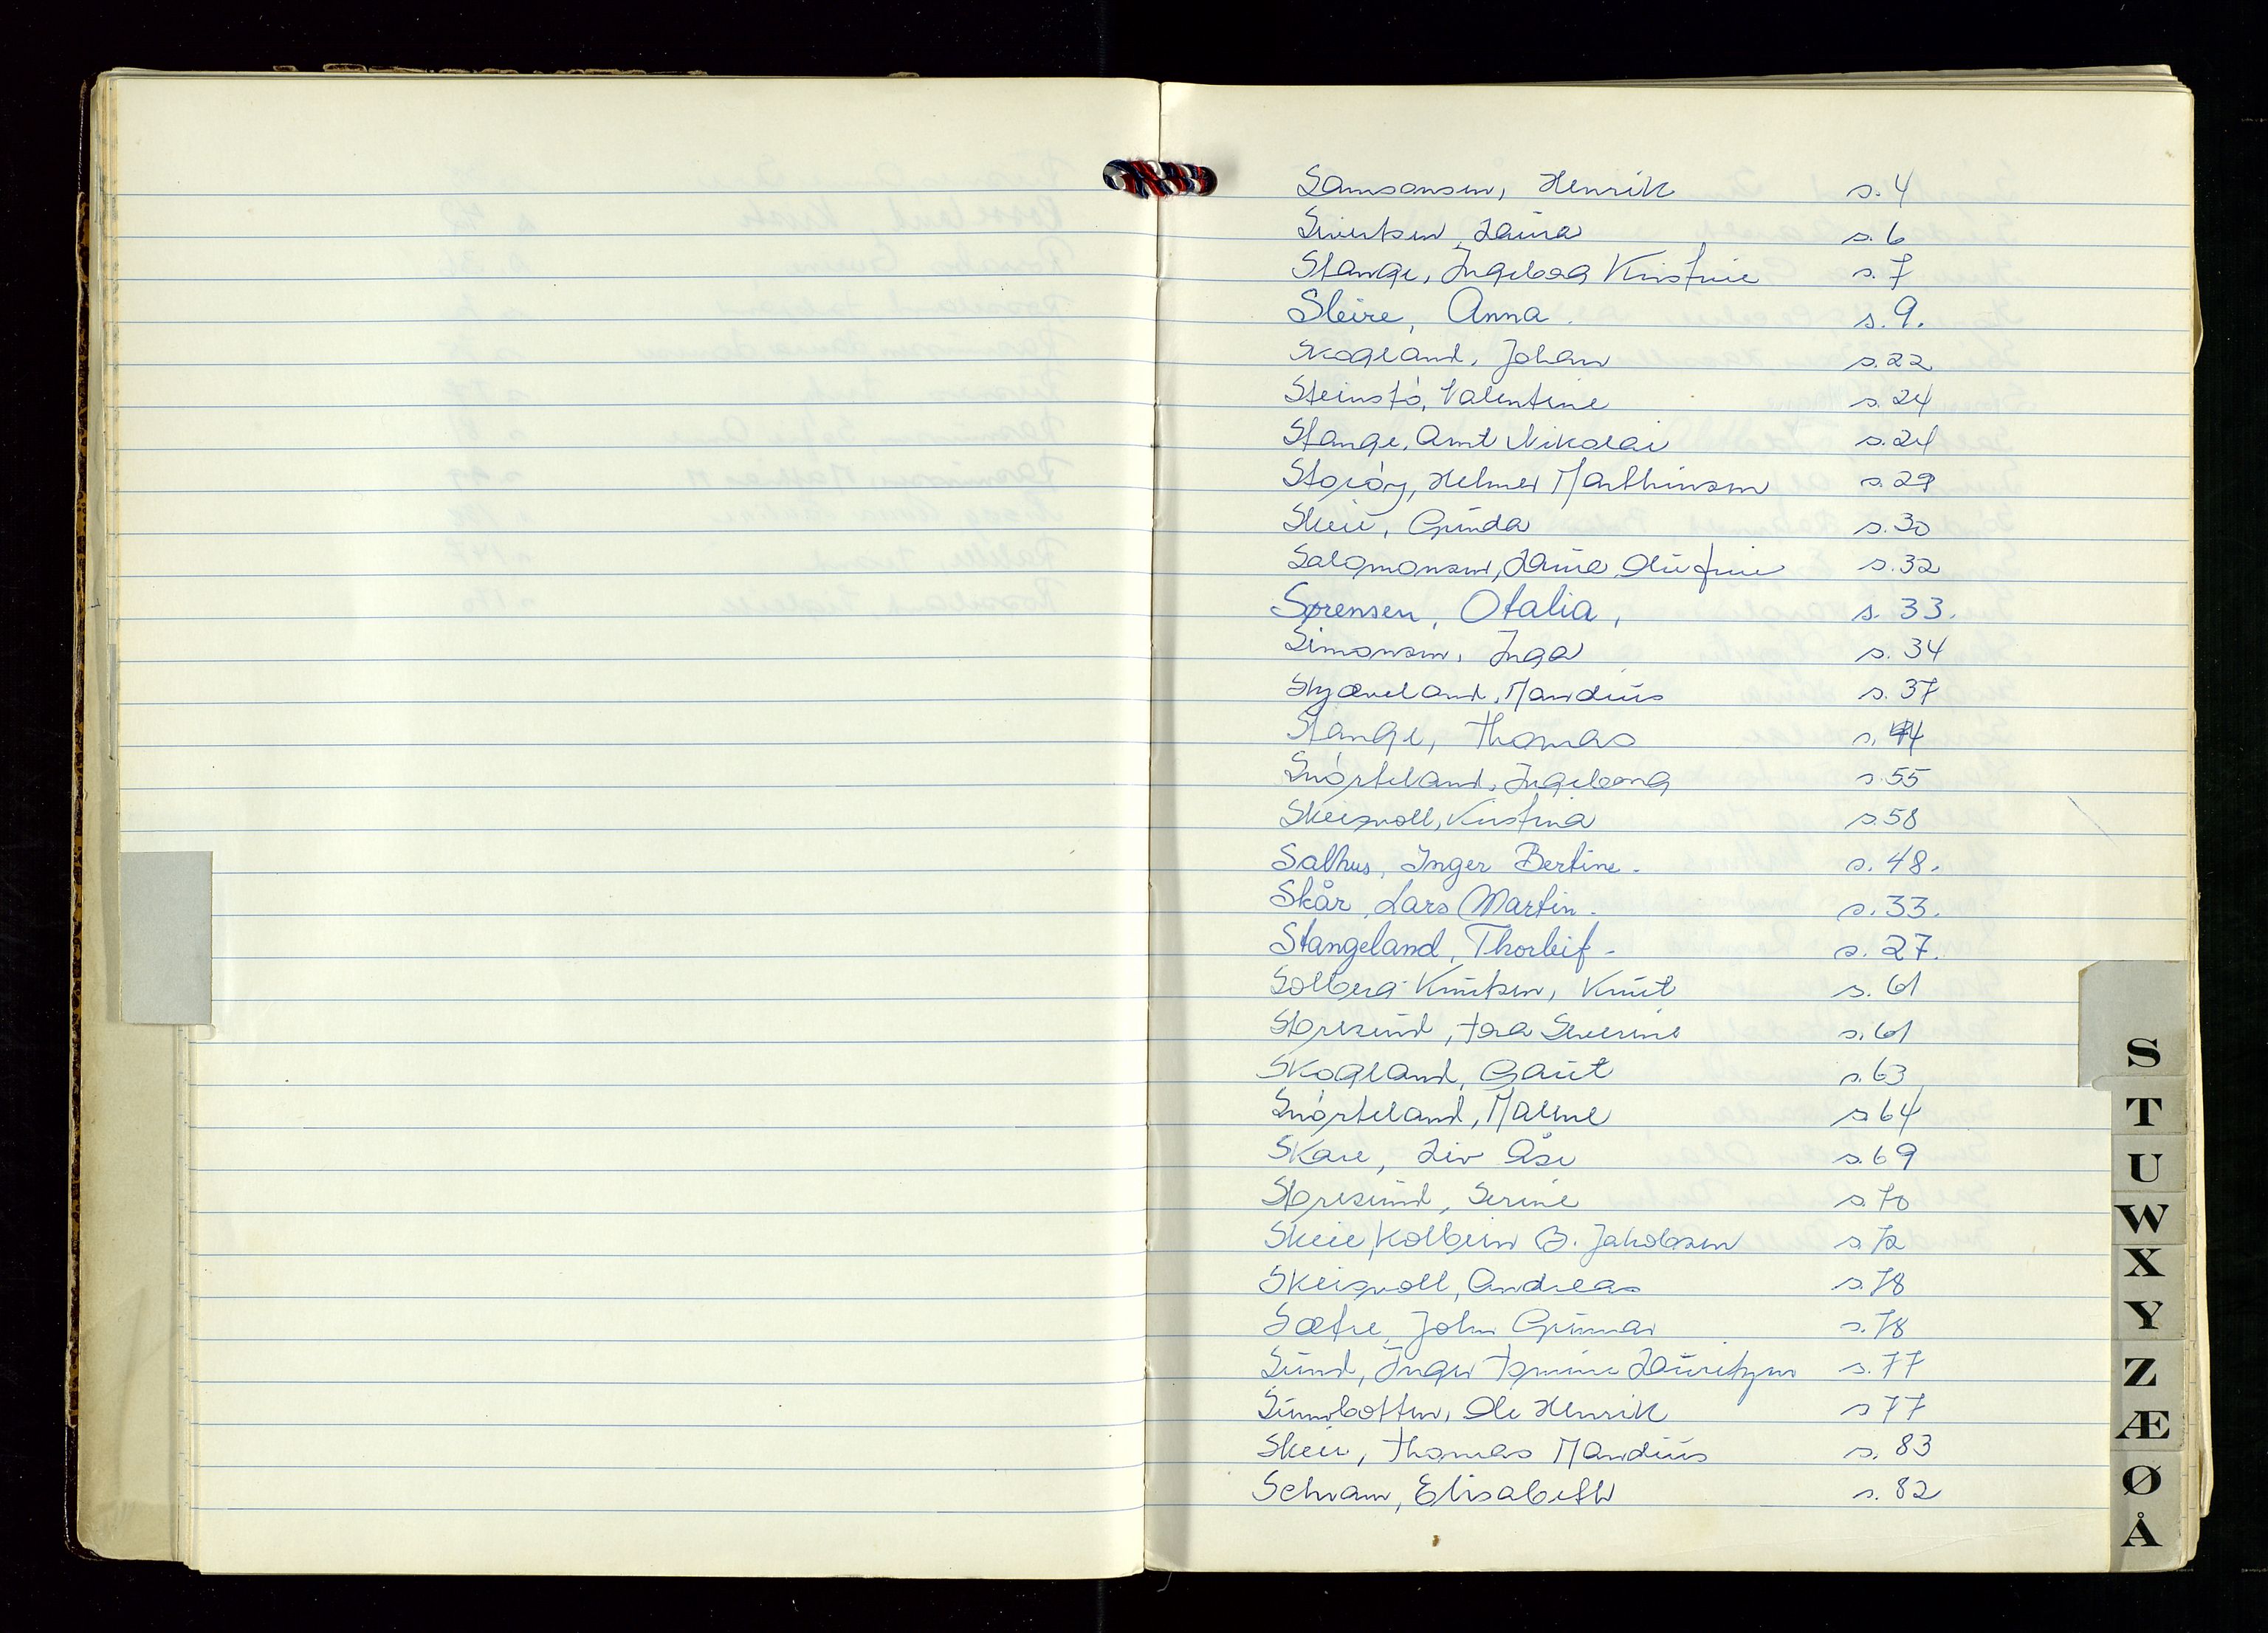 Samsonsen, Henrik s. 4
Sivertsen, Laura s. 6
Stange, Ingeborg Kristine s. 7
Sleire, Anna. s. 9.
Skogland, Johan s. 22
Steinstø, Valentine s. 24
Stange, Arnt Nikolai s. 24
Storøy, Helmer Mathinsen s. 29
Skeie, Gunda s. 30
Salomonsen, Laura Olufine s. 32
Sørensen, Otalia, s. 33.
Simonsen, Inga s. 34
Skjæveland, Mandius s. 37
Stange, Thomas s. 44
Snørteland, Ingeborg s. 55
Skeisvoll, Kristina s. 58
Salhus, Inger Bertine. s. 48.
Skår, Lars Martin. s. 33.
Stangeland, Thorleif - s. 27.
Solberg-Knutsen, Knut s. 61
Storesund, Tora Severine s. 61
Skogland, Gaut s. 63
Snørteland, Malene s. 64
Skare, Liv Åse s. 69
Storesund, Serine s. 70
Skeie, Kolbein B. Jakobsen s. 72
Skeisvoll, Andreas s. 78
Sætre, John Gunnar s. 78
Sund, Inger Tomine Lauritzen s. 77
Sunnbotten, Ole Henrik s 77
Skeie, Thomas Mandius s. 83
Schram, Elisabeth s. 82
S
T
U
W
X
Y
Z
Æ
Ø
Å